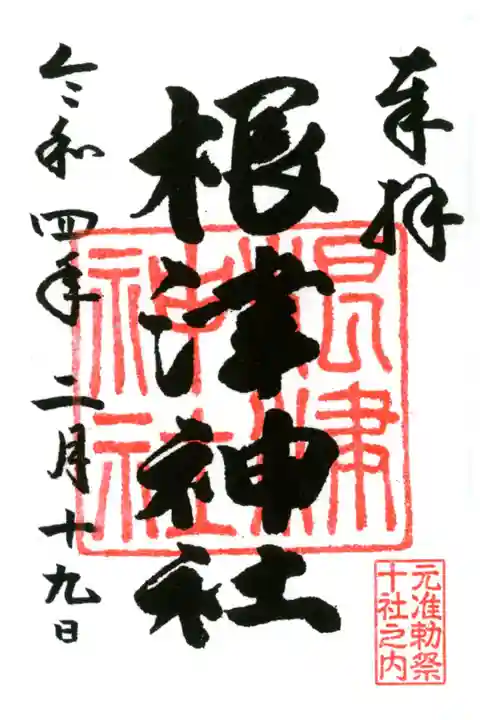 奉拝
根津神社
根津
神社
元准勅祭
十社之内
令和四年二月十九日